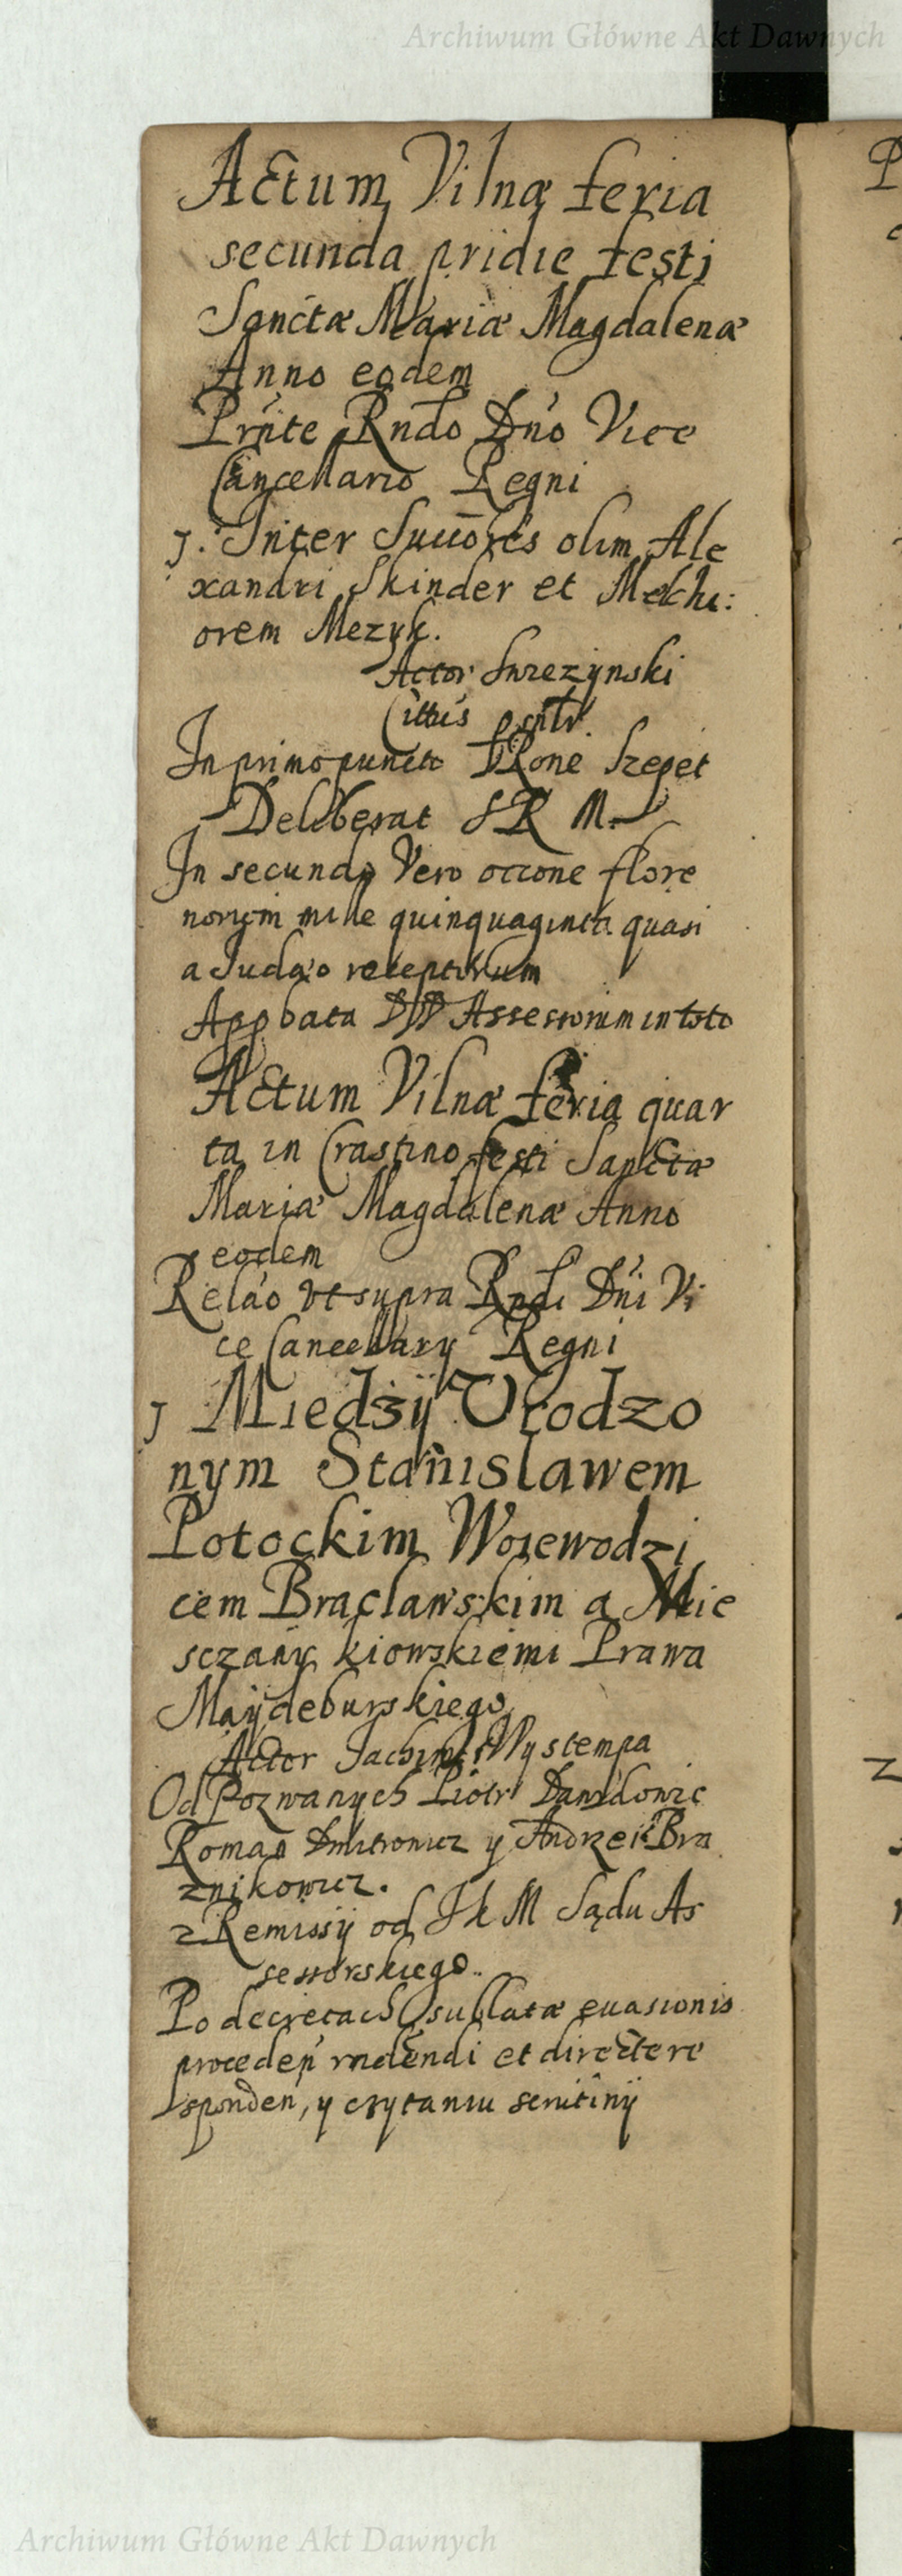 Archiwum Główne Akt Dawnych
Actum Vilnæ feria
secunda pridie festi
Sanctæ Mariæ Magdalenæ
Anno eodem
Prnte Rndo Dno Vice
Cancellario Regni
1. Inter Succores olim Ale
xandri Skinder et Melchi:
orem Mezyk.
Actor Swrezynski
Cittus
In primo puncto
Deliberat S R M.
In secundo Vero occone flore
norum mille quinquaginta quasi
a Judæo receptorum
Appbata DD Assessorum in toto
Actum Vilnæ feria quar
ta in Crastino festi Sanctæ
Mariæ Magdalenæ Anno
eodem
Relao ut supra Rndi Dni Vi
ce Cancellary Regni
1 Miedzÿ Urodzo
nym Stanislawem
Potockim Woiewodzi
cem Braclawskim a Mie
sczany kiowskiemi Prawa
Maÿdeburskiego
Actor Jachimes Wystempa
Od Pozwanych Piotr Dawidowic
Roman Dmitrowicz y Andrzei Bra
znikowicz.
z Remissÿ od JK M Sądu As
sessorskiego.
Po decretach sublatæ euasionis
proceden rndendi et directe re
sponden, y czytaniu scrutinÿ
Archiwum Główne Akt Dawnych